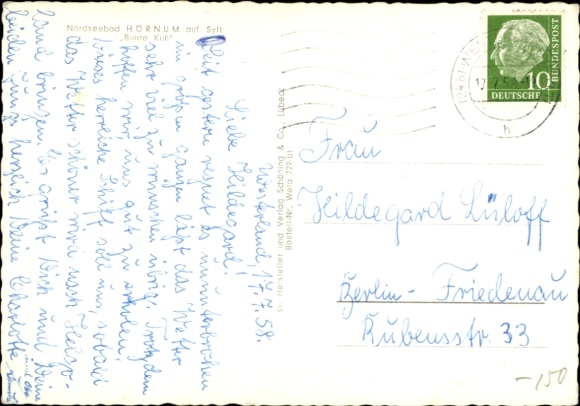 Nordseebad HÖRNUM auf Sylt
"Bunte Kuh"
Westerland, 17.7.58.
Liebe Hildegard!
Seit gestern regnet es ununterbrochen
im großen ganzen läßt das Wetter
sehr viel zu wünschen übrig. Trotzdem
hoffen wir, uns gut zu erholen.
Dieses herrliche Schiff soll uns, sobald
das Wetter schöner wird nach Helgo-
land bringen. Es grüßt Dich und Deine
beiden Jungs herzlich Deine Charlotte
Hersteller und Verlag Schöning & Co., Lübeck
Bestell-Nr. Wela 729 b1
DEUTSCHE BUNDESPOST
10
h
Frau
Hildegard Lüloff
Berlin-Friedenau
Rubensstr. 33
-150